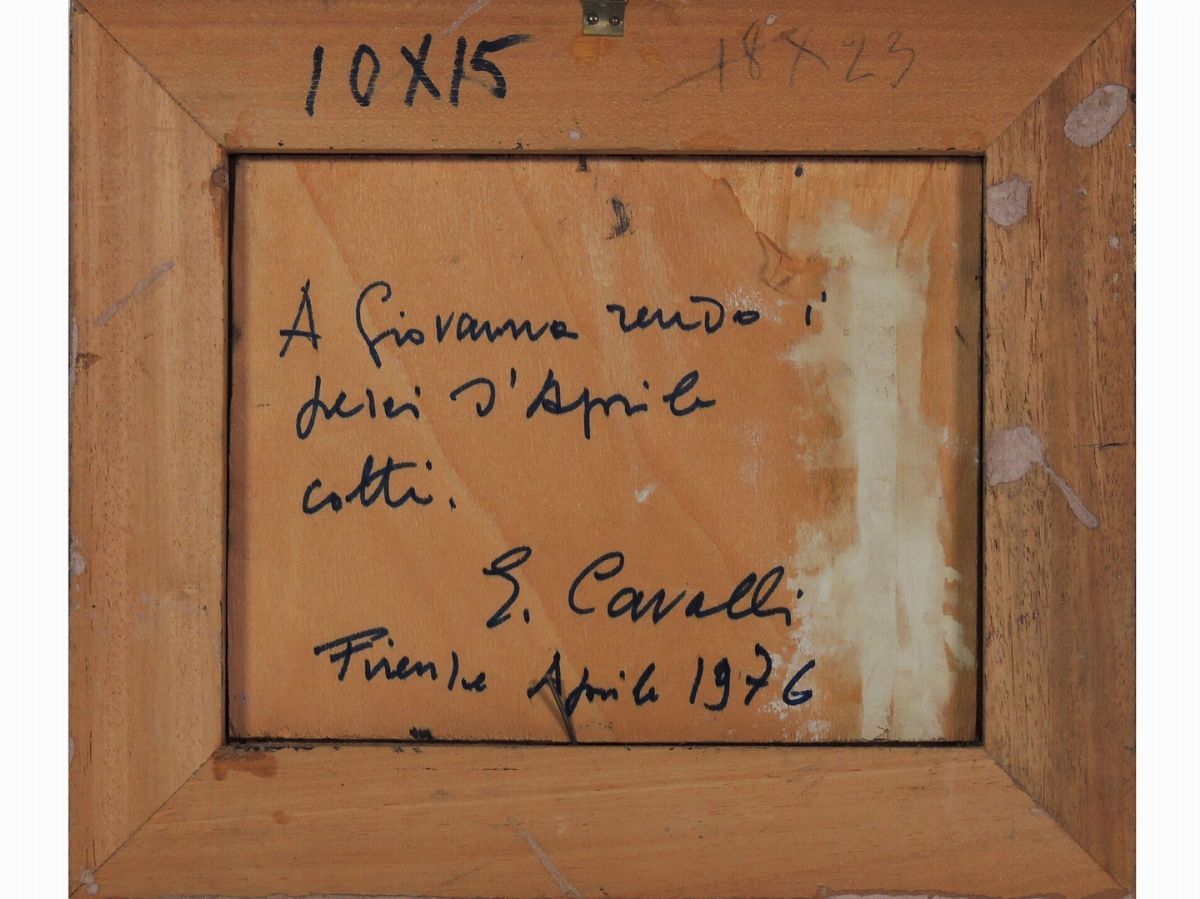 10X15 18X23
A Giovanna rendo i
pesci d'Aprile
cotti.
E. Cavalli
Firenze Aprile 1976